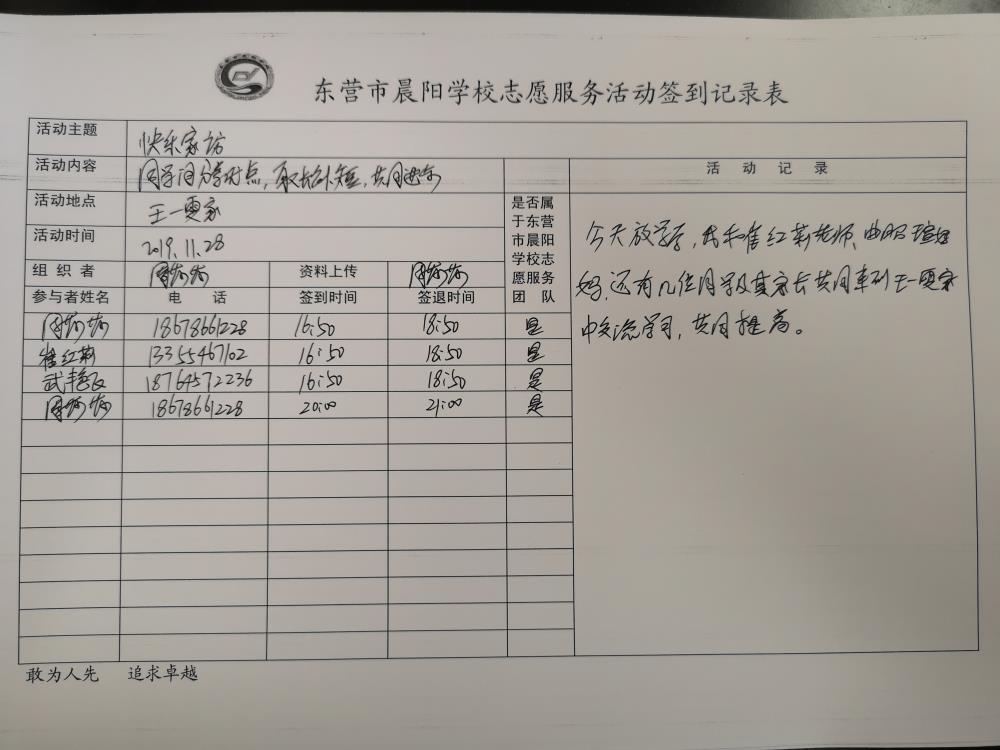 东营市晨阳学校志愿服务活动签到记录表
活动主题 快乐家访
活动内容 同学间分享对点，取长补短，共同进步
活动地点 王一雯家
活动时间 2019.11.28
组织者 资料上传
参与者姓名 电话 签到时间 签退时间
是否属于东营市晨阳学校志愿服务团队
18678661228 16:50 18:50 是
崔红莉 13355467102 16:50 18:50 是
武艳 18764572236 16:50 18:50 是
18678661228 20:00 21:00 是
活动记录
今天放学后，我和崔红莉老师、曲
妈妈，还有几位同学及其家长共同来到王一雯家
中交流学习，共同提高。
敢为人先 追求卓越